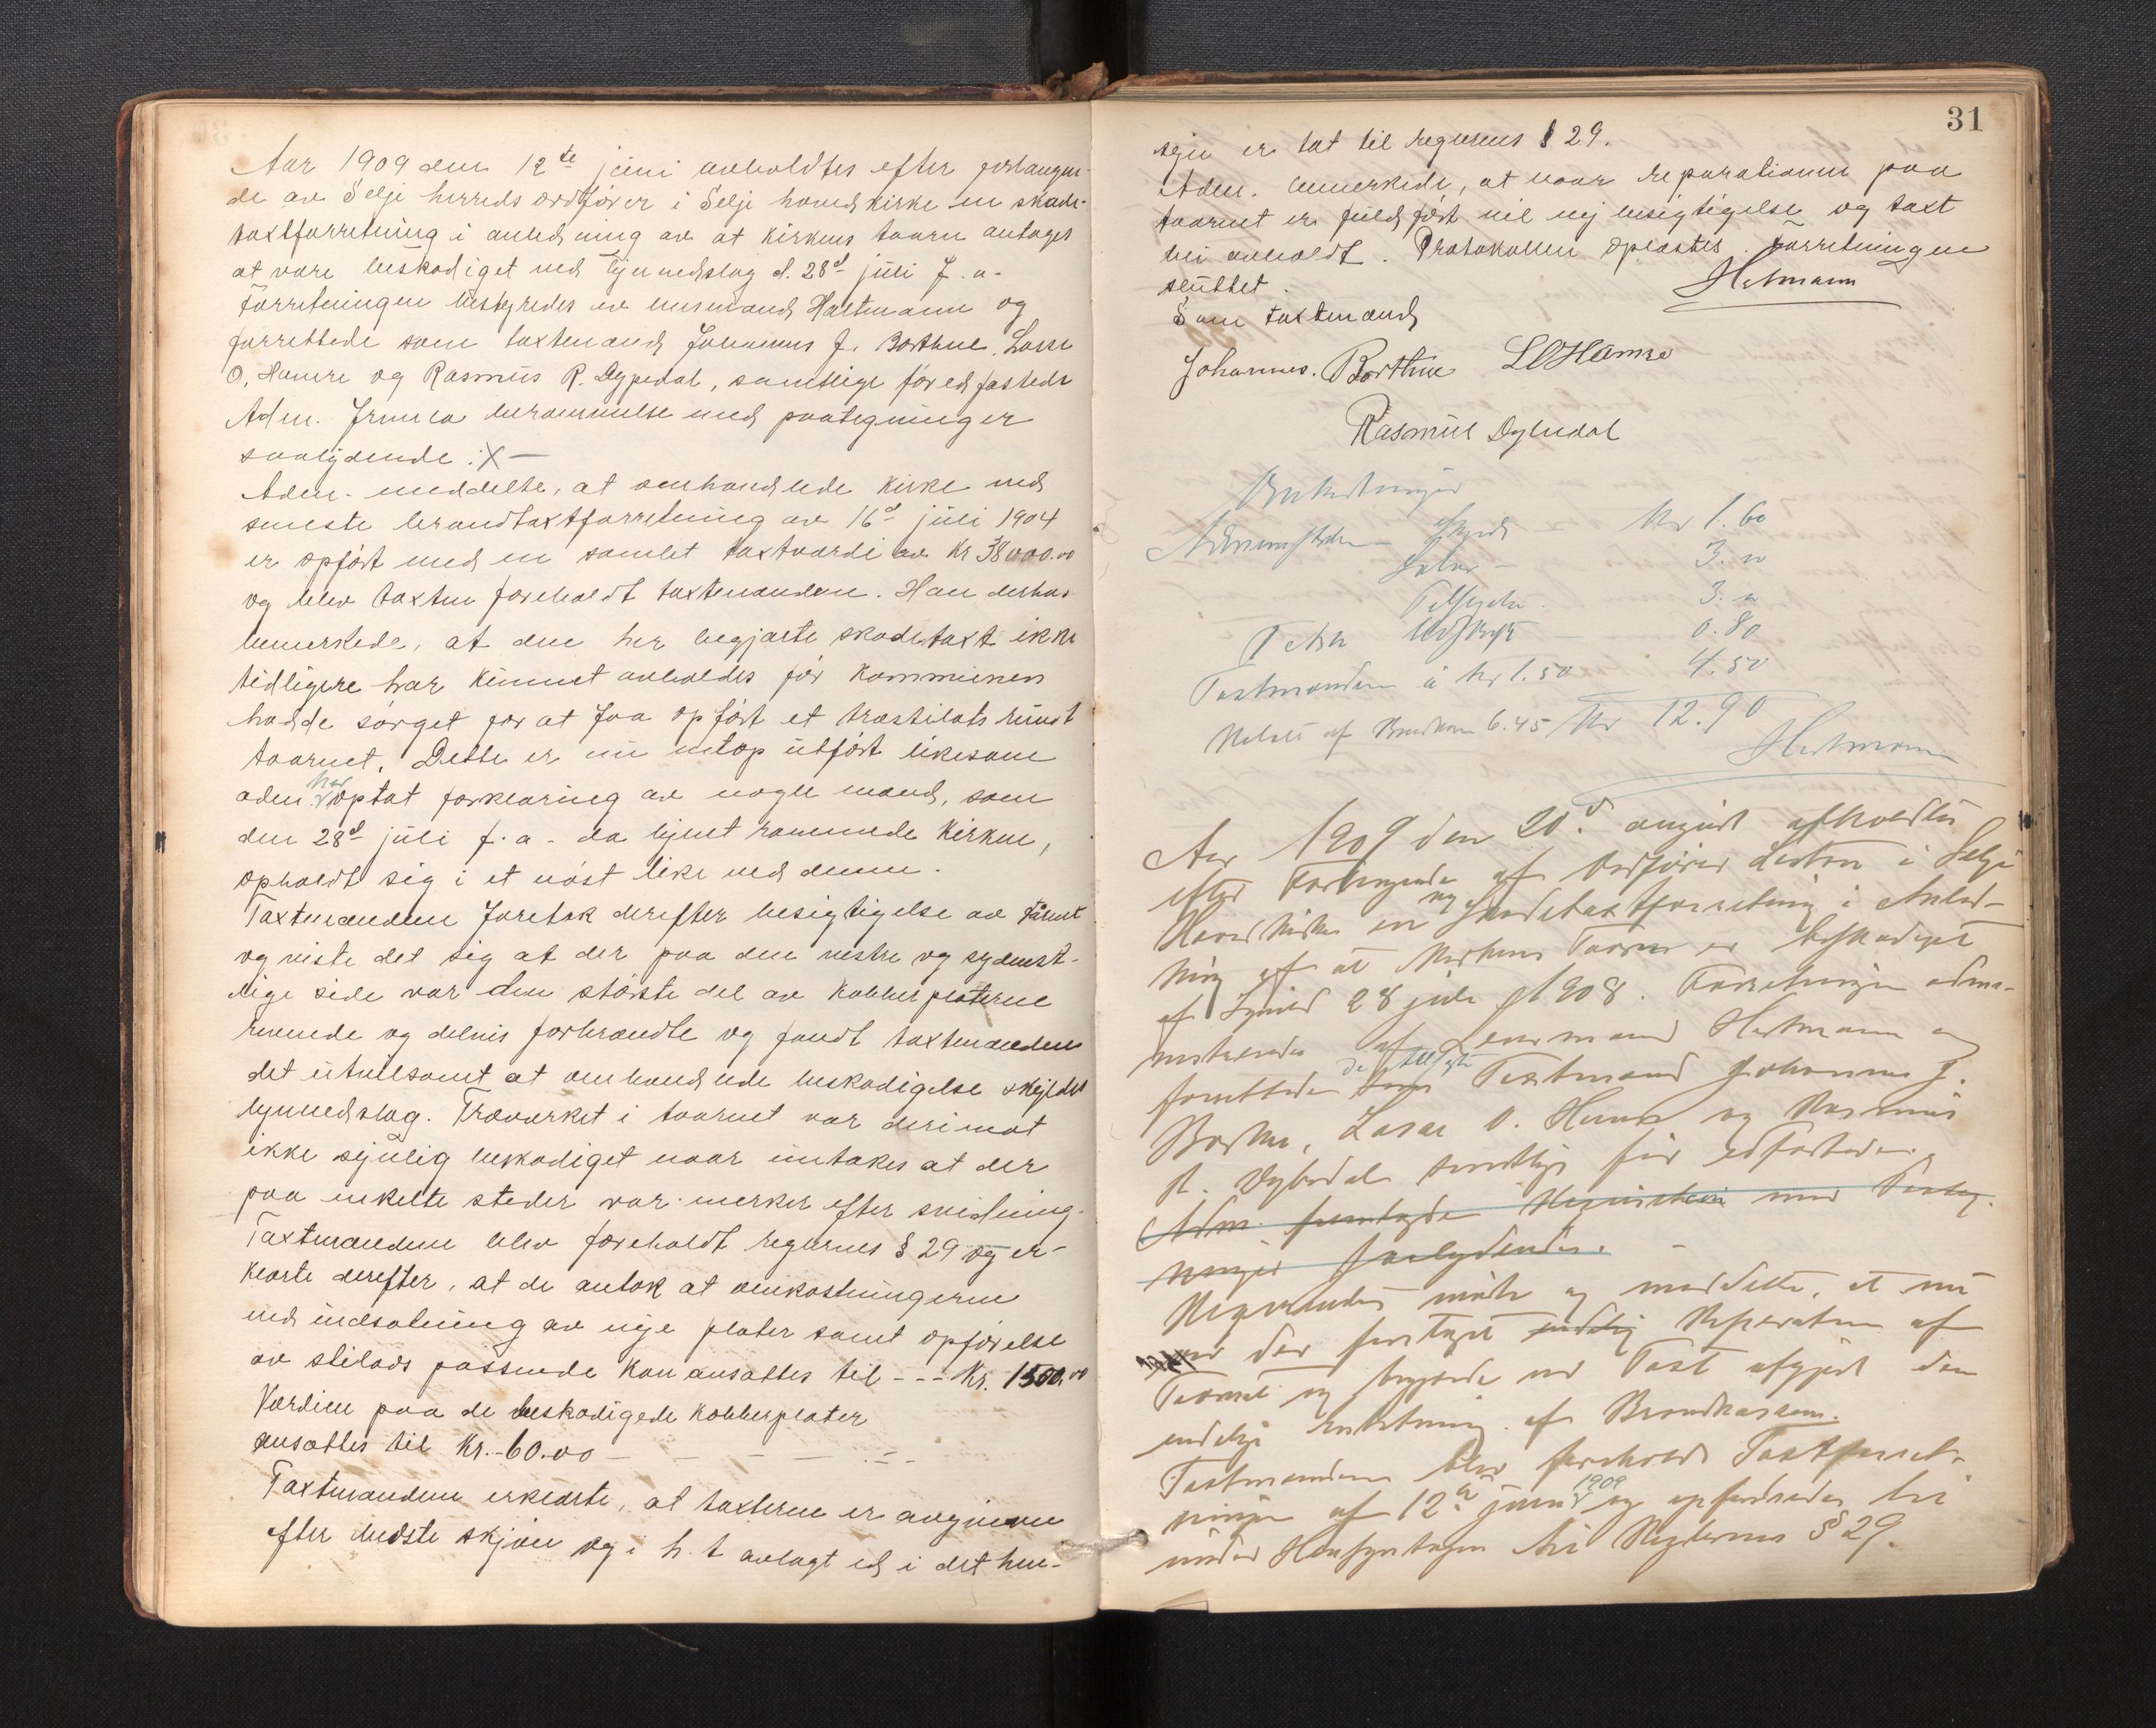 Aar 1909 den 12te juni avholdtes efter forlangen-
de av Selje herreds ordfører i Selje hovedkirke en skade-
taxtforretning i anledning av at kirkens taarn antages
at være beskadiget ved lynnedslag d. 28d juli f. a.
Forretningen bestyredes av lensmand Hartmann og
forrettede som taxtmænd Johannes J. Borthne, Lasse
O. Hamre og Rasmus R. Dybedal, samtlige før edfæstede
Adm. fremla berammelse med paategninger
saalydende :X —
Adm. meddelte, at omhandlede kirke ved
seneste brandtaxtforretning av 16d juli 1904
er opført med en samlet taxtværdi av Kr 38000.00
og blev taxten foreholdt taxtmændene. Han derhos
bemerkede, at den her begjærte skadetaxt ikke
tidligere har kunnet avholdes før kommunen
hadde sørget for at faa opført et træstilads rundt
taarnet. Dette er nu netop utført likesom
adm. har optat forklaring av nogle mænd, som
den 28d juli f. a. da lynet rammede kirken,
opholdt sig i et nøst like ved denne.
Taxtmændene foretok derefter besigtigelse av tårnet
og viste det sig at der paa den vestre og sydøst-
lige side var den største del av kobberplaterne
revnede og delvis forbrændte og fandt taxtmændene
det utvilsomt at omhandlede beskadigelse skyldes
lynnedslag. Træverket i taarnet var derimot
ikke synlig beskadiget naar undtakes at der
paa enkelte steder var merker efter svidning.
Taxtmændene blev foreholdt reglernes § 29 og er-
klærte derefter, at de antok at omkostningerne
ved indsætning av nye plater samt opførelse
av stilads passende kan ansættes til --- Kr. 1500.00
Værdien paa de beskadigede kobberplater
ansættes til Kr. 60.00 — — — —
Taxtmændene erklærte, at taxterne er avgivne
efter bedste skjøn og i h. t avlagt ed i det hen-
31
syn er tat til reglernes § 29.
Adm. bemerkede, at naar reparationen paa
taarnet er fuldført vil ny besigtigelse og taxt
bli avholdt. Protokollen oplæstes. Forretningen
sluttet.
Hartmann
Som taxtmænd
Johannes. Borthne LOHamre
Rasmus Dybedal
Skyds Kr 1.60
3.00
3.00
Udskrift 0.80
Taxtmænden á Kr 1.50 4.50
6.45 Kr 12.90
Hartmann
Aar 1909 den 20d august afholdtes
efter Forlangende af Ordfører i Selje
Hovedkirke en ny Skadetaxtforretning i Anled-
ning af at Kirkens Taarn er beskadiget
af Lynild 28 juli 1908. Forretningen admi-
nistreredes af Lensmand Hartmann og
forrettede som Taxtmænd Johannes J.
Borthne, Lasse O. Hamre og Rasmus
R. Dybedal samtlige før edfæstede.
Adm. fremlagde Rekvisition med Paateg-
ninger saalydende. —
Rekvirenten mødte og meddelte, at nu
var der foretaget endelig Reparation af
Taarnet og begjærede ved Taxt afgjort den
endelige Erstatning af Brandkassen.
Taxtmændene blev foreholdt Taxtforret-
ningen af 12d juni 1909 og opfordredes til
under Hensyntagen til Reglernes § 29.